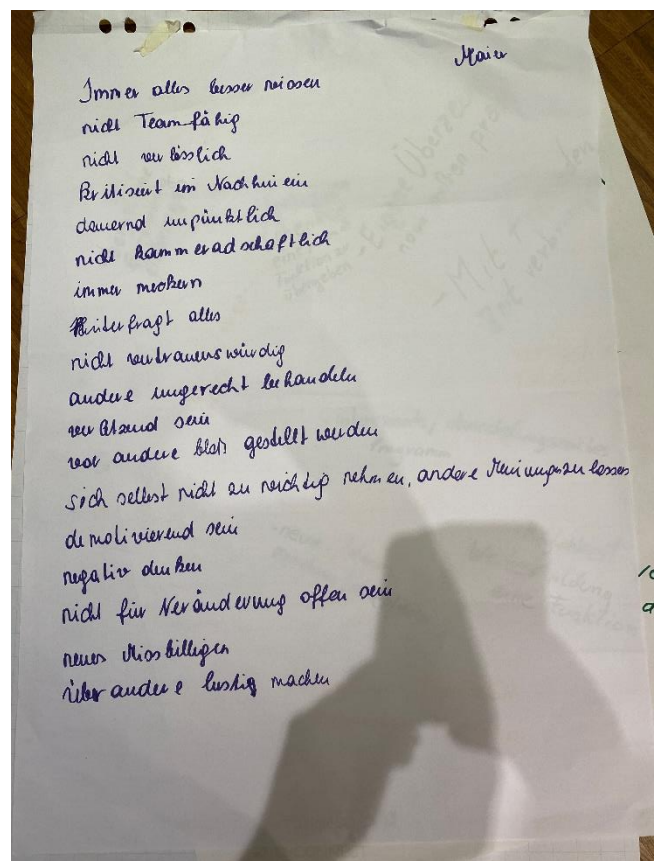 Maier
Immer alles besser wissen
nicht Teamfähig
nicht verlässlich
kritisiert im Nachhinein
dauernd unpünktlich
nicht kammeradschaftlich
immer meckern
Hinterfragt alles
nicht vertrauenswürdig
andere ungerecht behandeln
verletzend sein
vor andere bloß gestellt werden
sich selbst nicht zu wichtig nehmen, andere Meinungen zu lassen
demotivierend sein
negativ denken
nicht für Veränderung offen sein
neues Missbilligen
über andere lustig machen